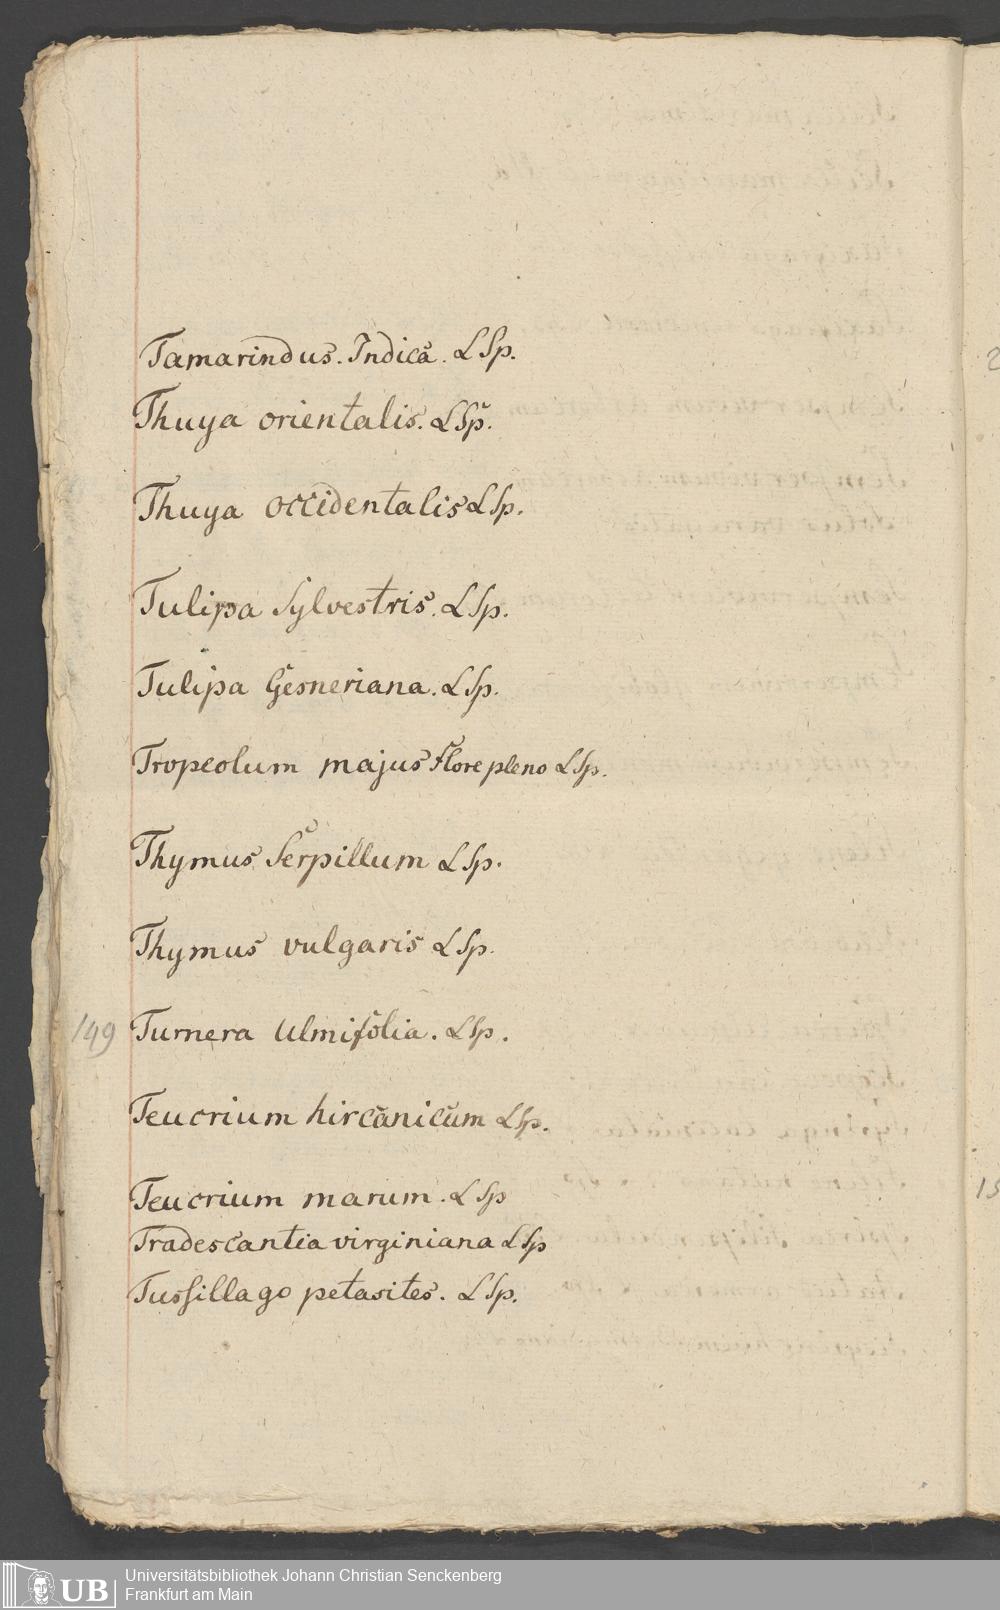 Tamarindus. Indica. L Sp.
Thuya orientalis. L Sp.
Thuya occidentalis L Sp.
Tulipa Sylvestris. L Sp.
Tulipa Gesneriana. L Sp.
Tropeolum majus Flore pleno L Sp.
Thymus Serpillum L Sp.
Thymus vulgaris L Sp.
149 Turnera Ulmifolia. L Sp.
Teucrium hircanicum L Sp.
Teucrium marum. L Sp
Tradescantia virginiana L Sp
Tussillago petasites. L Sp.
UB Universitätsbibliothek Johann Christian Senckenberg
Frankfurt am Main